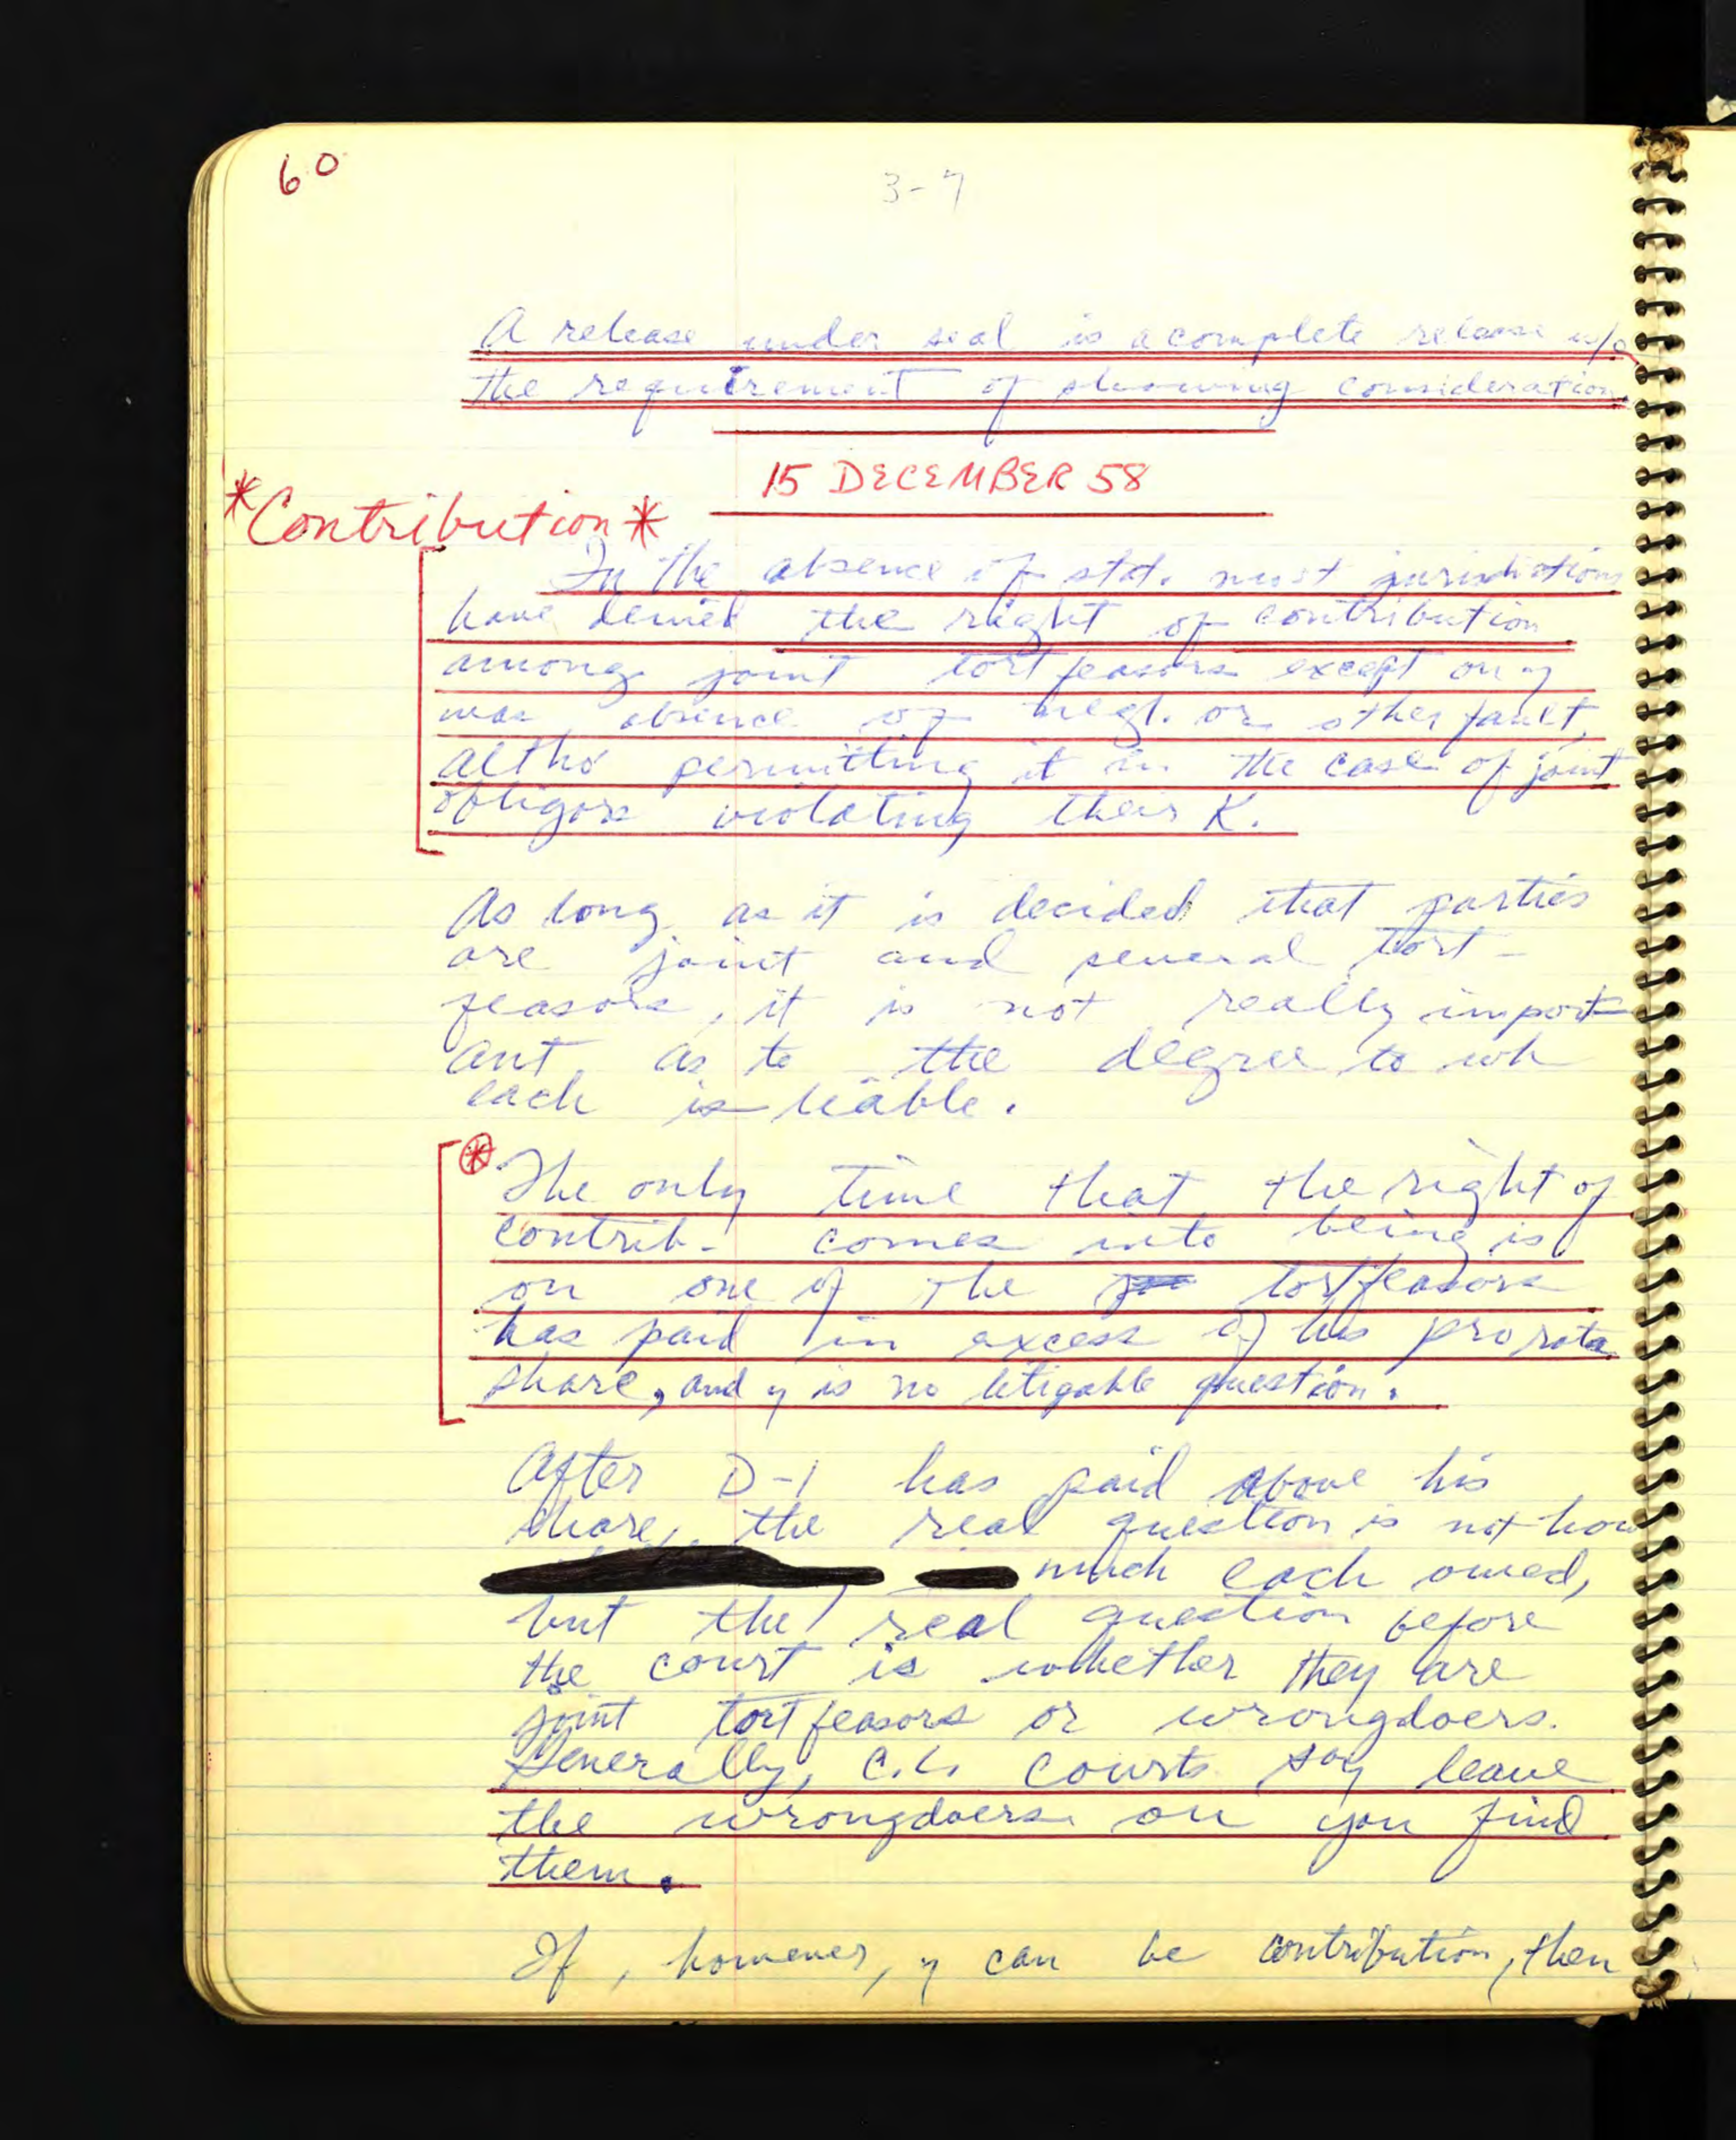 60
3-7
A release under seal is a complete release w/o
the requirement of showing consideration.
15 DECEMBER 58
*Contribution*
In the absence of stat. most jurisdictions
have denied the right of contribution
among joint tort feasors except on y
was absence of negl. or other fault,
altho' permitting it in the case of joint
obligors violating their K.
As long as it is decided that parties
are joint and several tort-
feasors, it is not really import
ant as to the degree to wh
each is liable.
* The only time that the right of
contrib. comes into being is
on one of the tortfeasors
has paid in excess of his pro rata
share, and y is no litigable question.
After D-1 has paid above his
share, the real question is not how
much each owed,
but the real question before
the court is whether they are
joint tort feasors or wrongdoers.
Generally, C.L. courts say leave
the wrongdoers on you find
them.
If, however, y can be contribution, then